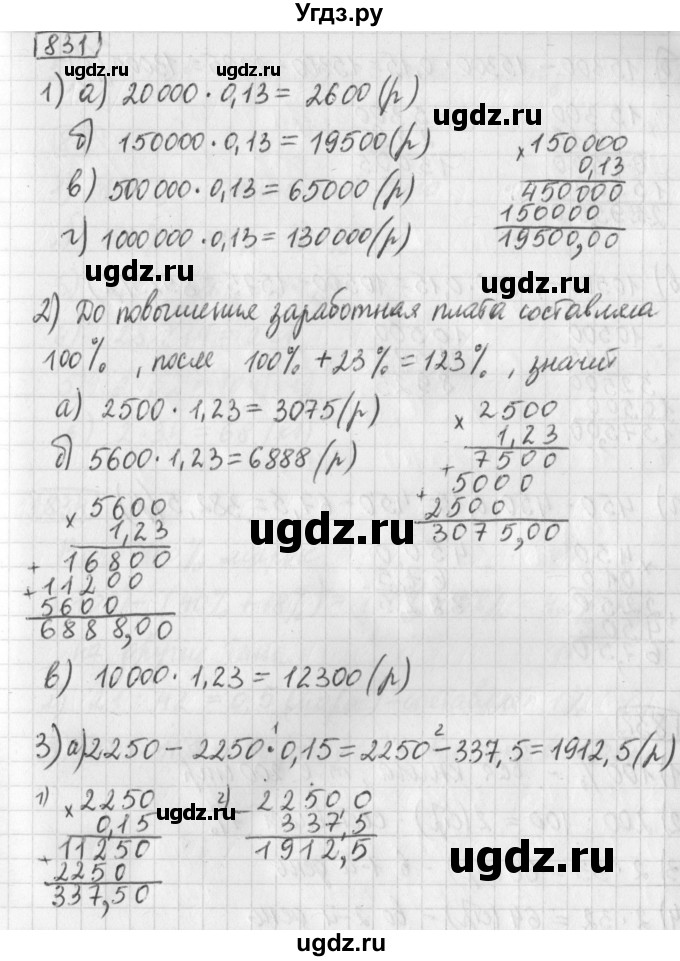 Угдз.ру
831
ugdz.ru
ugdz.ru
1) а) 20000 · 0,13 = 2600 (р)
ugdz.ru
ugdz.ru
б) 150000 · 0,13 = 19500 (р)
× 150000
0,13
450000
150000
19500,00
в) 500000 · 0,13 = 65000 (р)
г) 1000000 · 0,13 = 130000 (р)
ugdz.ru
2) До повышения заработная плата составляла
100%, после 100% + 23% = 123%, значит
а) 2500 · 1,23 = 3075 (р)
× 2500
1,23
7500
+ 5000
+ 2500
3075,00
б) 5600 · 1,23 = 6888 (р)
× 5600
1,23
+ 16800
+ 11200
5600
6888,00
ugdz.ru
ugdz.ru
в) 10000 · 1,23 = 12300 (р)
3) а) 2250 − 2250 ·¹ 0,15 = 2250 −² 337,5 = 1912,5 (р)
1) × 2250
0,15
11250
+ 2250
337,50
2) − 2250,0
337,5
1912,5
ugdz.ru
ugdz.ru
ugdz.ru